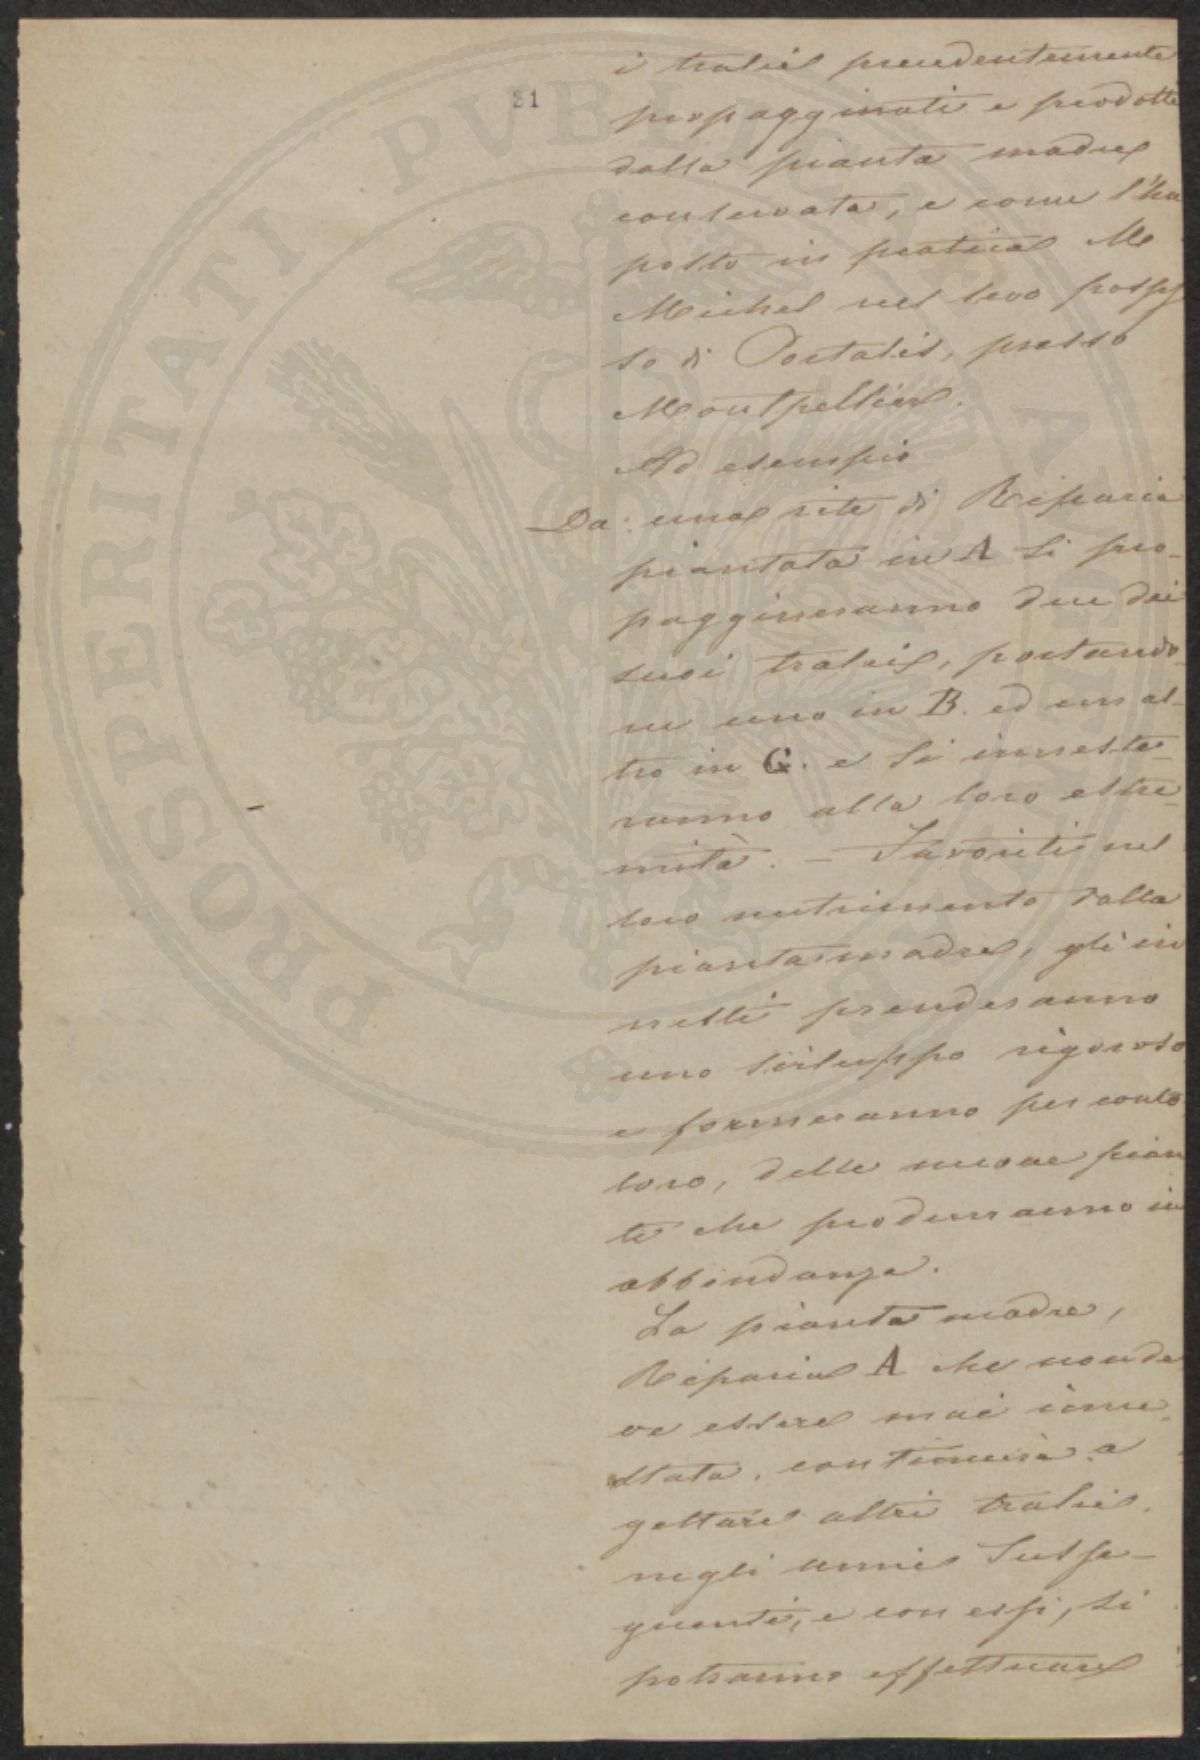 31
i tralci precedentemente
propagginati e prodotti
dalla pianta madre
conservata, e come l'ha
posto in pratica Mr
Michel nel suo posses
so di Portalis, presso
Montpellier.
Ad esempio
Da una vite di Riparia
piantata in A si pro-
paggineranno due dei
suoi tralci, portando-
ne uno in B. ed un al-
tro in C. e si inneste-
ranno alla loro estre-
mità. — Favoriti nel
loro nutrimento dalla
pianta madre, gli in
nesti prenderanno
uno sviluppo vigoroso
e formeranno per conto
loro, delle nuove pian
te che produrranno in
abbondanza.
La pianta madre,
Riparia A che non de
ve essere mai inne-
stata, continuerà a
gettare altri tralci
negli anni susse-
guenti, e con essi, si
potranno effettuare
PROSPERITATI PVBLICAE AVGENDAE